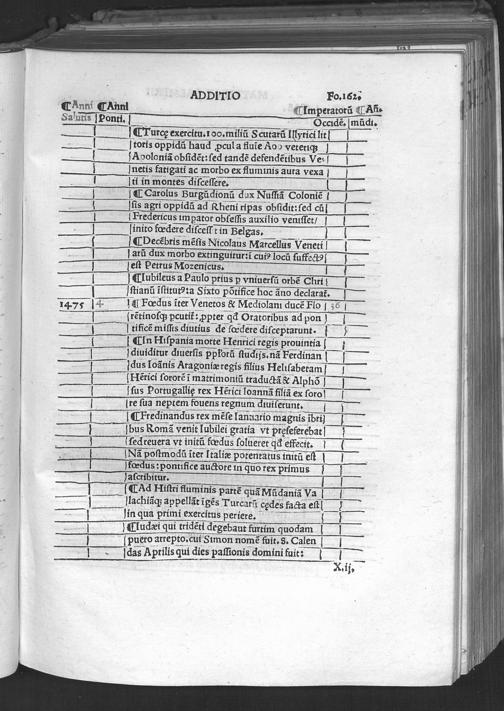 ADDITIO Fo.162.
¶Anni ¶Anni ¶Imperatorū ¶Añ.
Salutis Ponti. Occidē. mūdi.
¶Turcę exercitu.100.miliū Scutarū Illyrici lit
toris oppidū haud ꝓcul a fluīe Aoo veteriqꝫ
Apoloniā obsidēt: sed tandē defendētibus Ve
netis fatigati ac morbo ex fluminis aura vexa
ti in montes discessere.
¶Carolus Burgūdionū dux Nussiā Coloniē
sis agri oppidū ad Rheni ripas obsidit: sed cū
Fredericus impator obsessis auxilio venisset/
inito fœdere discessit in Belgas.
¶Decēbris mēsis Nicolaus Marcellus Veneti
arū dux morbo extinguitur: i cuiꝰ locū suffectꝰ
est Petrus Mozenicus.
¶Iubileus a Paulo prius ꝑ vniversū orbē Chri
stianū īstitutꝰ: a Sixto pōtifice hoc āno declarat̄.
1475 4 ¶Fœdus īter Venetos & Mediolani ducē Flo 36
rētinosqꝫ pcutit̄: ꝓpter qđ Oratoribus ad pon
tificē missis diutius de fœdere disceptarunt.
¶In Hispania morte Henrici regis prouintia
diuiditur diuersis pplorū studijs. nā Ferdinan
dus Ioānis Aragoniæ regis filius Helisabetam
Hērici sororē ī matrimoniū traductā & Alphō
sus Portugallię rex Hērici Ioannā filiā ex soro
re sua neptem fouens regnum diuiserunt.
¶Ferdinandus rex mēse Ianuario magnis ībri
bus Romā venit Iubilei gratia vt pręseferebat
sed reuera vt initū fœdus solueret qđ effecit.
Nā postmodū īter Italiæ potentatus initū est
fœdus: pontifice auctore in quo rex primus
ascribitur.
¶Ad Histri fluminis partē quā Mūdaniā Va
lachiāqꝫ appellāt īgēs Turcarū cędes facta est
in qua primi exercitus periere.
¶Iudæi qui tridēti degebaut furtim quodam
puero arrepto. cui Simon nomē fuit. 8. Calen
das Aprilis qui dies passionis domini fuit:
X.ij.